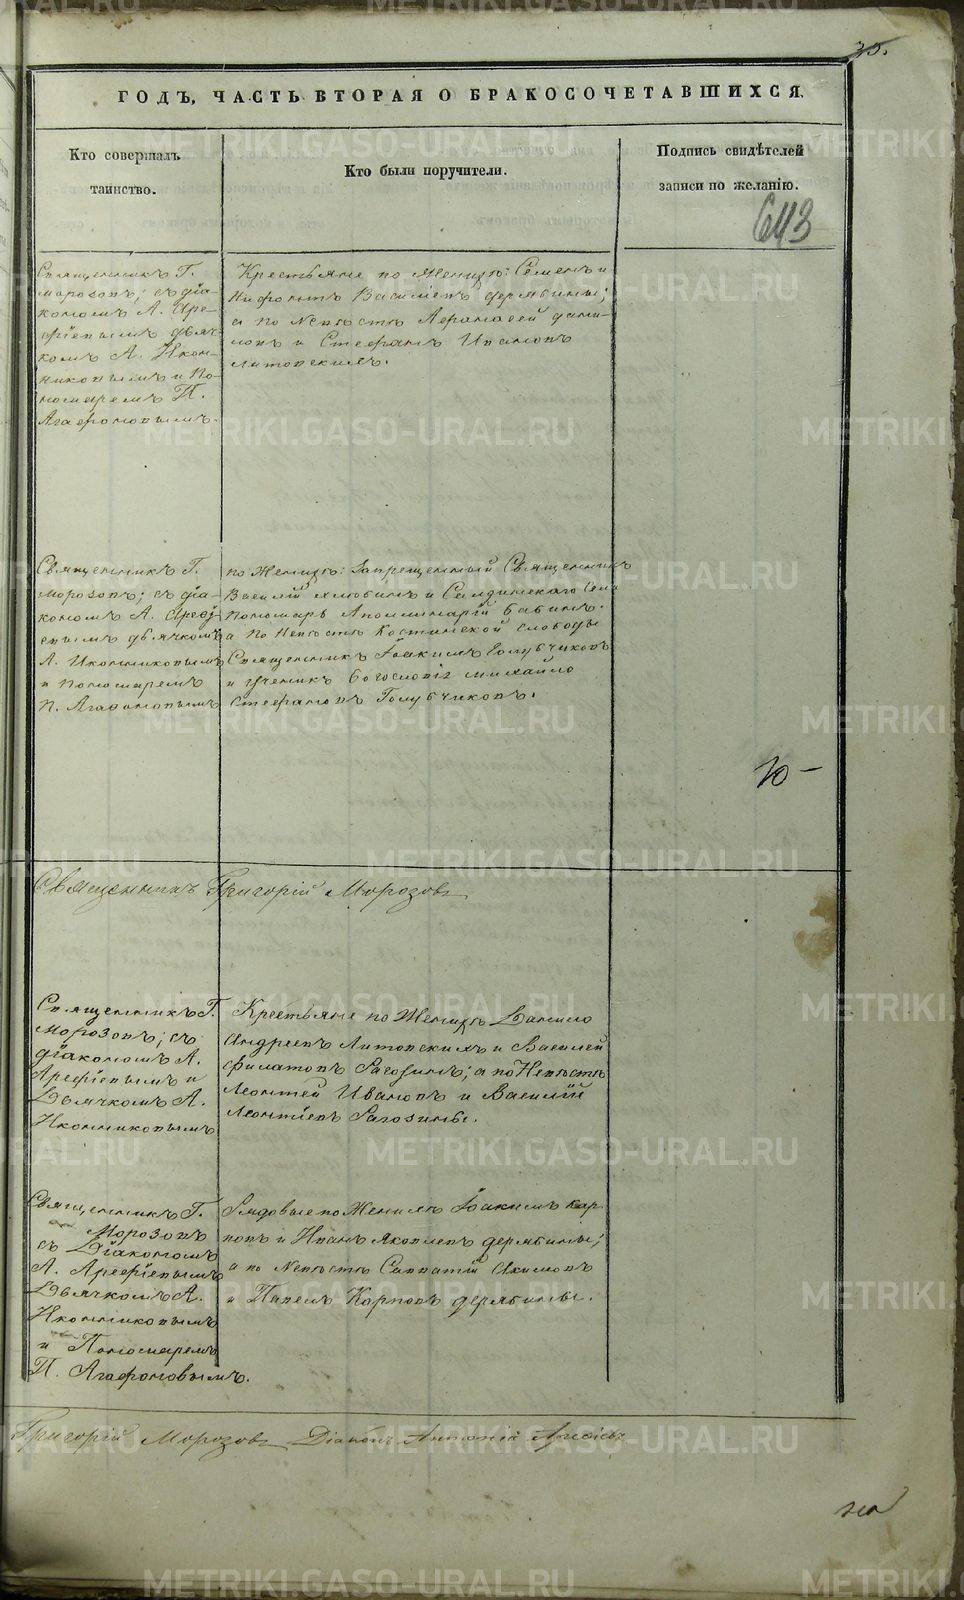 35.
ГОДЪ, ЧАСТЬ ВТОРАЯ О БРАКОСОЧЕТАВШИХСЯ.
Кто совершалъ
таинство.
Кто были поручители.
Подпись свидѣтелей
записи по желанію.
643
Священникъ Г.
Морозовъ; съ діа-
кономъ А. Аре-
фіевымъ дьяч-
комъ А. Икон-
никовымъ и По-
номаремъ П.
Агафоновымъ.
Крестьяне по Женихѣ: Семенъ и
Нифонтъ Василіевъ Дерябины;
а по Невѣстѣ Афанасей Дани-
ловъ и Стефанъ Ивановъ
Литовскихъ.
Священникъ Г.
Морозовъ; съ діа-
кономъ А. Ареф-
іевымъ дьячкомъ
А. Иконниковымъ
и Пономаремъ
П. Агафоновымъ
по Женихѣ: Запрещенный Священникъ
Василій и Салдинскаго Села
Пономарь Аполлинарій Бабинъ.
а по Невѣстѣ Костинской слободы
Священникъ Іоакимъ Голубчиковъ
и ученикъ богословія Михайло
Стефановъ Голубчиковъ.
Священникъ Григорій Морозовъ
Священникъ Г.
Морозовъ; съ
діакономъ А.
Арефіевымъ и
Дьячкомъ А.
Иконниковымъ
Крестьяне по Женихѣ Данило
Андреевъ Литовскихъ и Василей
Филатовъ Рагозинъ; а по Невѣстѣ
Леонтей Ивановъ и Василій
Леонтіевъ Рагозины.
Священникъ Г.
Морозовъ
съ Діакономъ
А. Арефіевымъ
Дьячкомъ А.
Иконниковымъ
и Пономаремъ
П. Агафоновымъ.
Рядовые по Женихѣ Іоакимъ Кар-
повъ и Иванъ Яковлевъ Дерябины;
а по Невѣстѣ Савватій Акимовъ
и Павелъ Карповъ Дерябины.
Григорій Морозовъ Діаконъ Антоній Арефіевъ
METRIKI.GASO-URAL.RU